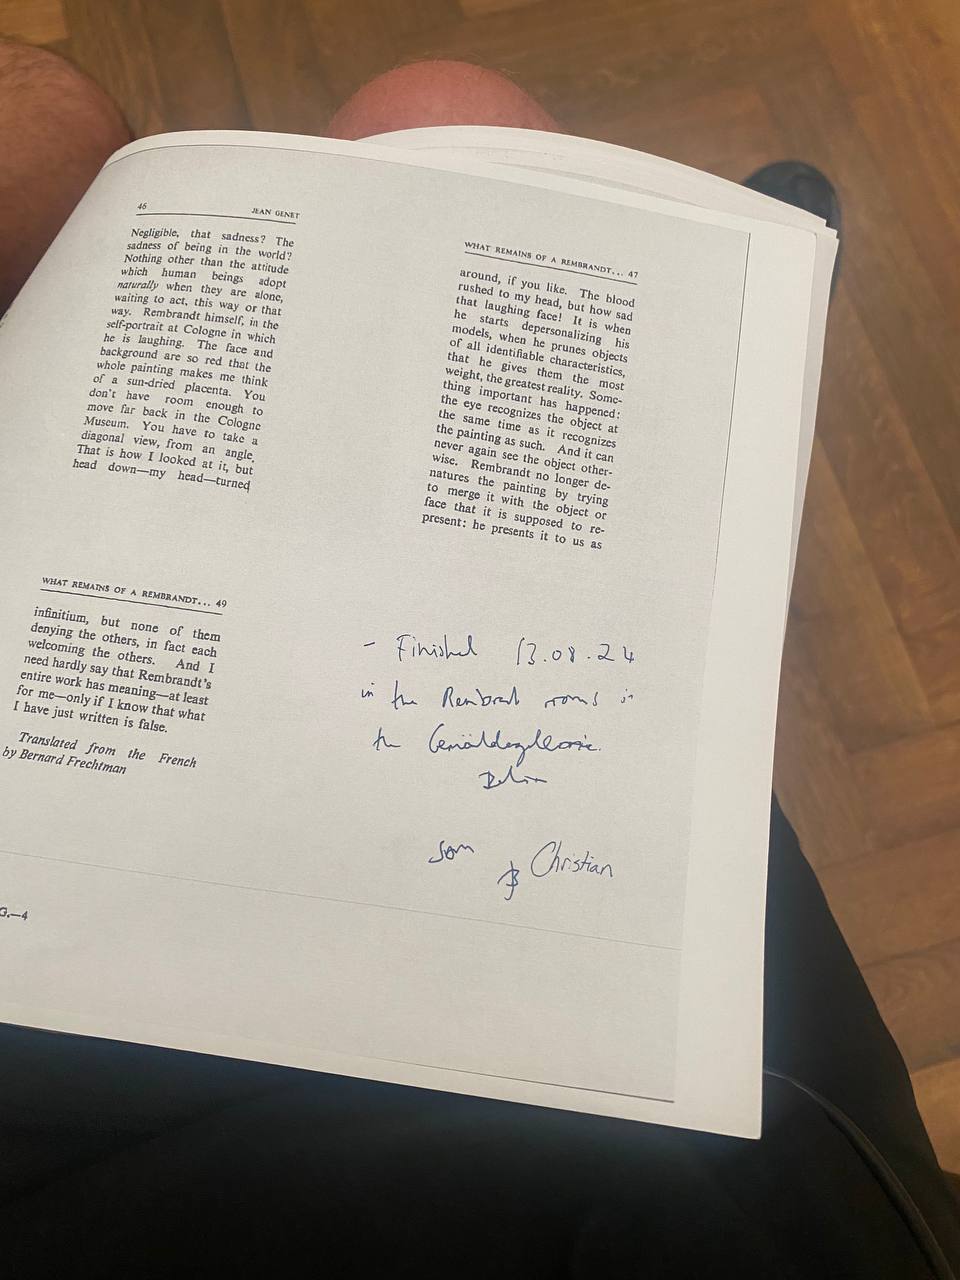 46 JEAN GENET
Negligible, that sadness? The
sadness of being in the world?
Nothing other than the attitude
which human beings adopt
naturally when they are alone,
waiting to act, this way or that
way. Rembrandt himself, in the
self-portrait at Cologne in which
he is laughing. The face and
background are so red that the
whole painting makes me think
of a sun-dried placenta. You
don't have room enough to
move far back in the Cologne
Museum. You have to take a
diagonal view, from an angle.
That is how I looked at it, but
head down—my head—turned
WHAT REMAINS OF A REMBRANDT... 47
around, if you like. The blood
rushed to my head, but how sad
that laughing face! It is when
he starts depersonalizing his
models, when he prunes objects
of all identifiable characteristics,
that he gives them the most
weight, the greatest reality. Some-
thing important has happened:
the eye recognizes the object at
the same time as it recognizes
the painting as such. And it can
never again see the object other-
wise. Rembrandt no longer de-
natures the painting by trying
to merge it with the object or
face that it is supposed to re-
present: he presents it to us as
WHAT REMAINS OF A REMBRANDT... 49
infinitium, but none of them
denying the others, in fact each
welcoming the others. And I
need hardly say that Rembrandt's
entire work has meaning—at least
for me—only if I know that what
I have just written is false.
Translated from the French
by Bernard Frechtman
- Finished 13.08.24
in the Rembrandt rooms in
the Gemäldegalerie
Berlin
Sam
& Christian
G.—4